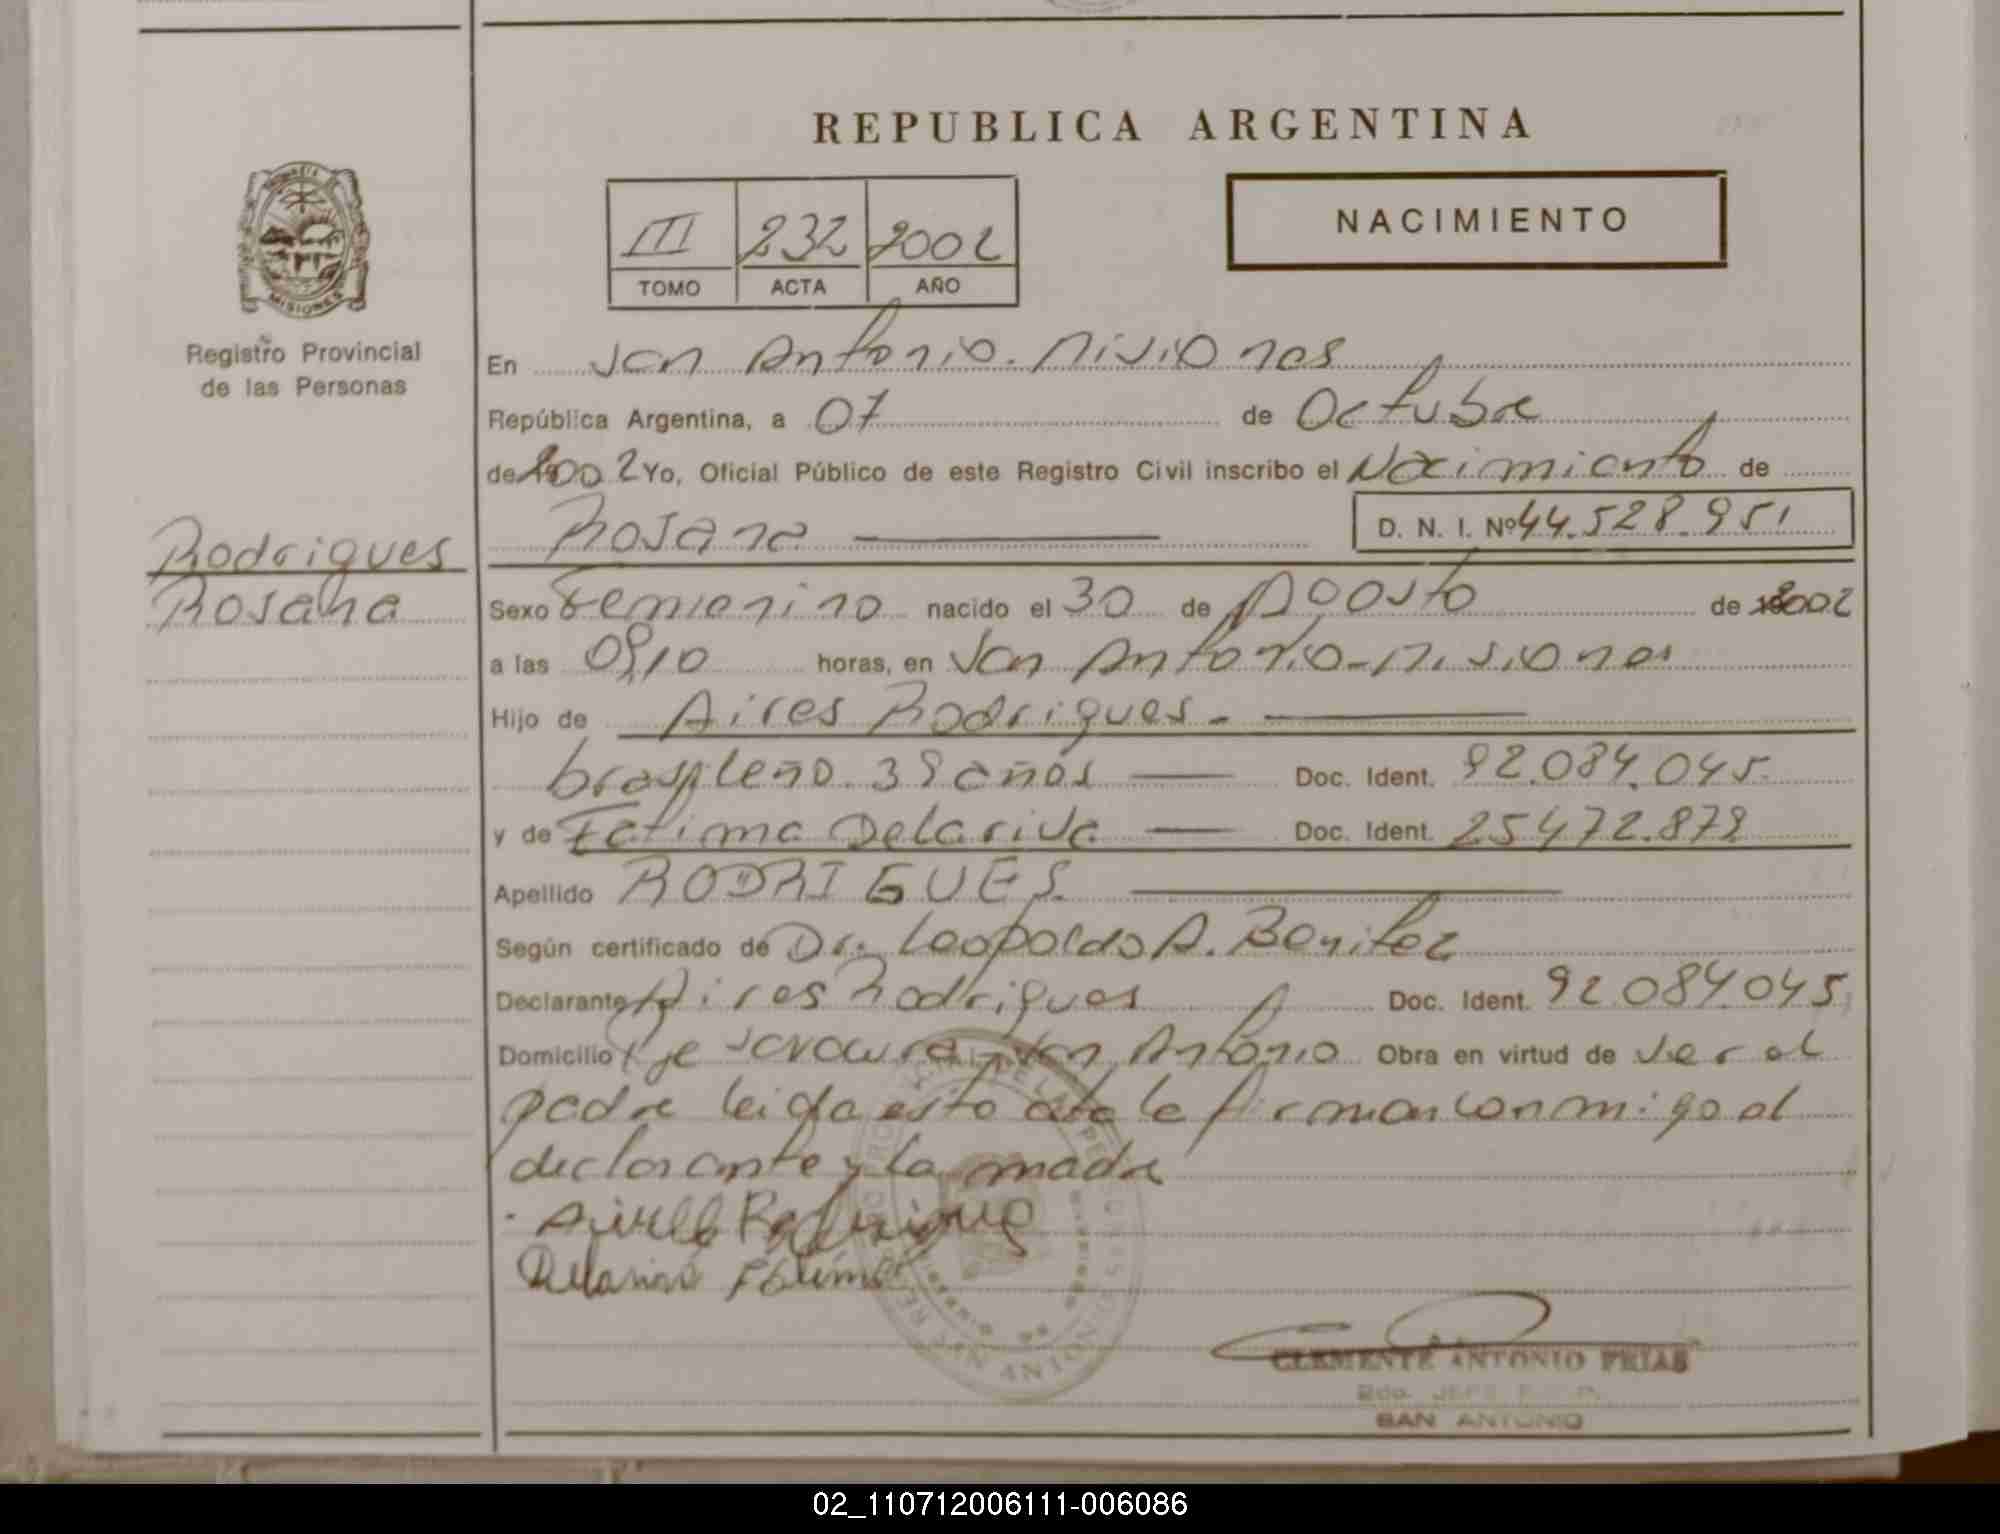 REPUBLICA ARGENTINA
NACIMIENTO
III 232 2002
TOMO ACTA AÑO
MISIONES
Registro Provincial
de las Personas
En San Antonio. Misiones
República Argentina, a 07 de Octubre
de 2002 Yo, Oficial Público de este Registro Civil inscribo el Nacimiento de
Rosana
D. N. I. Nº 44.528.951
Rodrigues
Rosana
Sexo Femenino nacido el 30 de Agosto de 2002
a las 09,10 horas, en San Antonio-Misiones
Hijo de Aires Rodrigues.
brasileño. 39 años Doc. Ident. 92.084.045.
y de Fatima Delariva Doc. Ident. 25472.879
Apellido RODRIGUES.
Según certificado de Dr. Leopoldo A. Benitez
Declarante Aires Rodrigues Doc. Ident. 92.084.045
Domicilio San Antonio Obra en virtud de ser el
padre leida esta acta la firman conmigo el
declarante y la madre
Delariva Fatima
CLEMENTE ANTONIO FRIAS
SAN ANTONIO
02_110712006111-006086